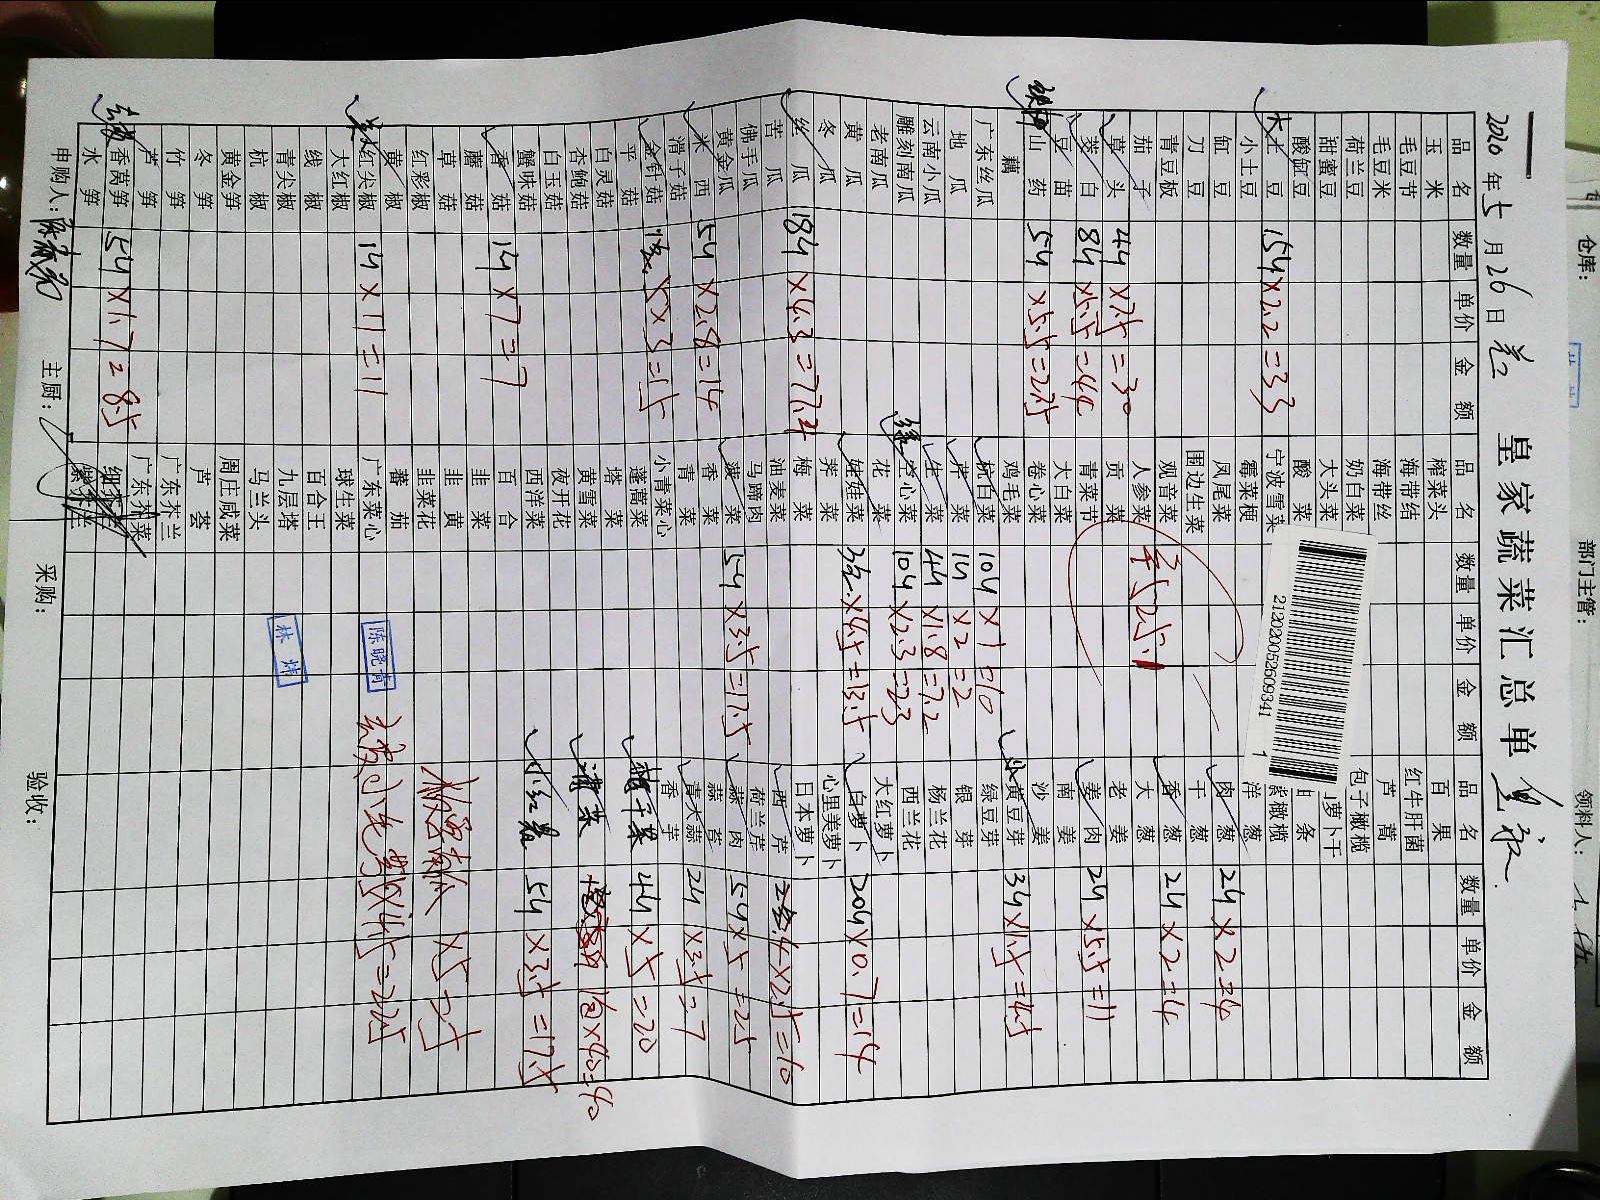 皇家蔬菜汇总单
2020年5月26日
仓库：
部门主管：
领料人：
品名 数量 单价 金额 品名 数量 单价 金额 品名 数量 单价 金额
玉米 榨菜头 百果
毛豆节 海带结 红牛肝菌
毛豆米 海带丝 芦蒿
荷兰豆 奶白菜 包子橄榄
甜蜜豆 大头菜 萝卜干
酸缸豆 酸菜 条
土豆 15斤×2.2=33 宁波雪菜 紫橄榄
小土豆 霉菜梗 洋葱
缸豆 凤尾菜 肉葱 2斤×2=4
刀豆 围边生菜 干葱
青豆板 观音菜 香葱 2斤×2=4
茄子 人参菜 大葱
草头 4斤×7.5=30 贡菜 老姜
茭白 8斤×5.5=44 青菜节 姜肉 2斤×5.5=11
豆苗 大白菜 南姜
山药 5斤×5.5=27.5 卷心菜 沙姜
藕 鸡毛菜 小黄豆芽 3斤×1.5=4.5
广东丝瓜 杭白菜 10斤×1=10 绿豆芽
地瓜 芹菜 1斤×2=2 银芽
云南小瓜 生菜 4斤×1.8=7.2 杨兰花
雕刻南瓜 空心菜 10斤×2.3=23 西兰花
老南瓜 花菜 大红萝卜
黄瓜 娃娃菜 ×4.5=13.5 白萝卜 20斤×0.7=14
冬瓜 荠菜 心里美萝卜
丝瓜 18斤×4.3=77.4 梅菜 日本萝卜
苦瓜 油麦菜 西芹 ×2.5=10
佛手瓜 马蹄肉 荷兰芹
黄金瓜 菠菜 5斤×3.5=17.5 蒜肉 5斤×5=25
米西 5斤×2.8=14 香菜 蒜苔
滑子菇 青菜 青大蒜 2斤×3.5=7
金针菇 ×3=15 小青菜心 香芋
平菇 蓬蒿菜 4斤×5=20
白灵菇 塔菜
杏鲍菇 黄雪菜 ×40=40
白玉菇 夜开花
蟹味菇 西洋菜 5斤×3.5=17.5
香菇 1斤×7=7 百合
蘑菇 韭菜
草菇 韭黄
红彩椒 韭菜花
黄椒 蕃茄
红尖椒 1斤×11=11 广东菜心
大红椒 球生菜
线椒 百合王
青尖椒 九层塔
杭椒 马兰头
黄金笋 周庄咸菜
冬笋 芦荟
竹笋 广东芥兰
芦笋 广东芥菜
香莴笋 5斤×1.7=8.5
水笋
212020052609341 1
陈晓青
林炜
申购人：
主厨：
采购：
验收：